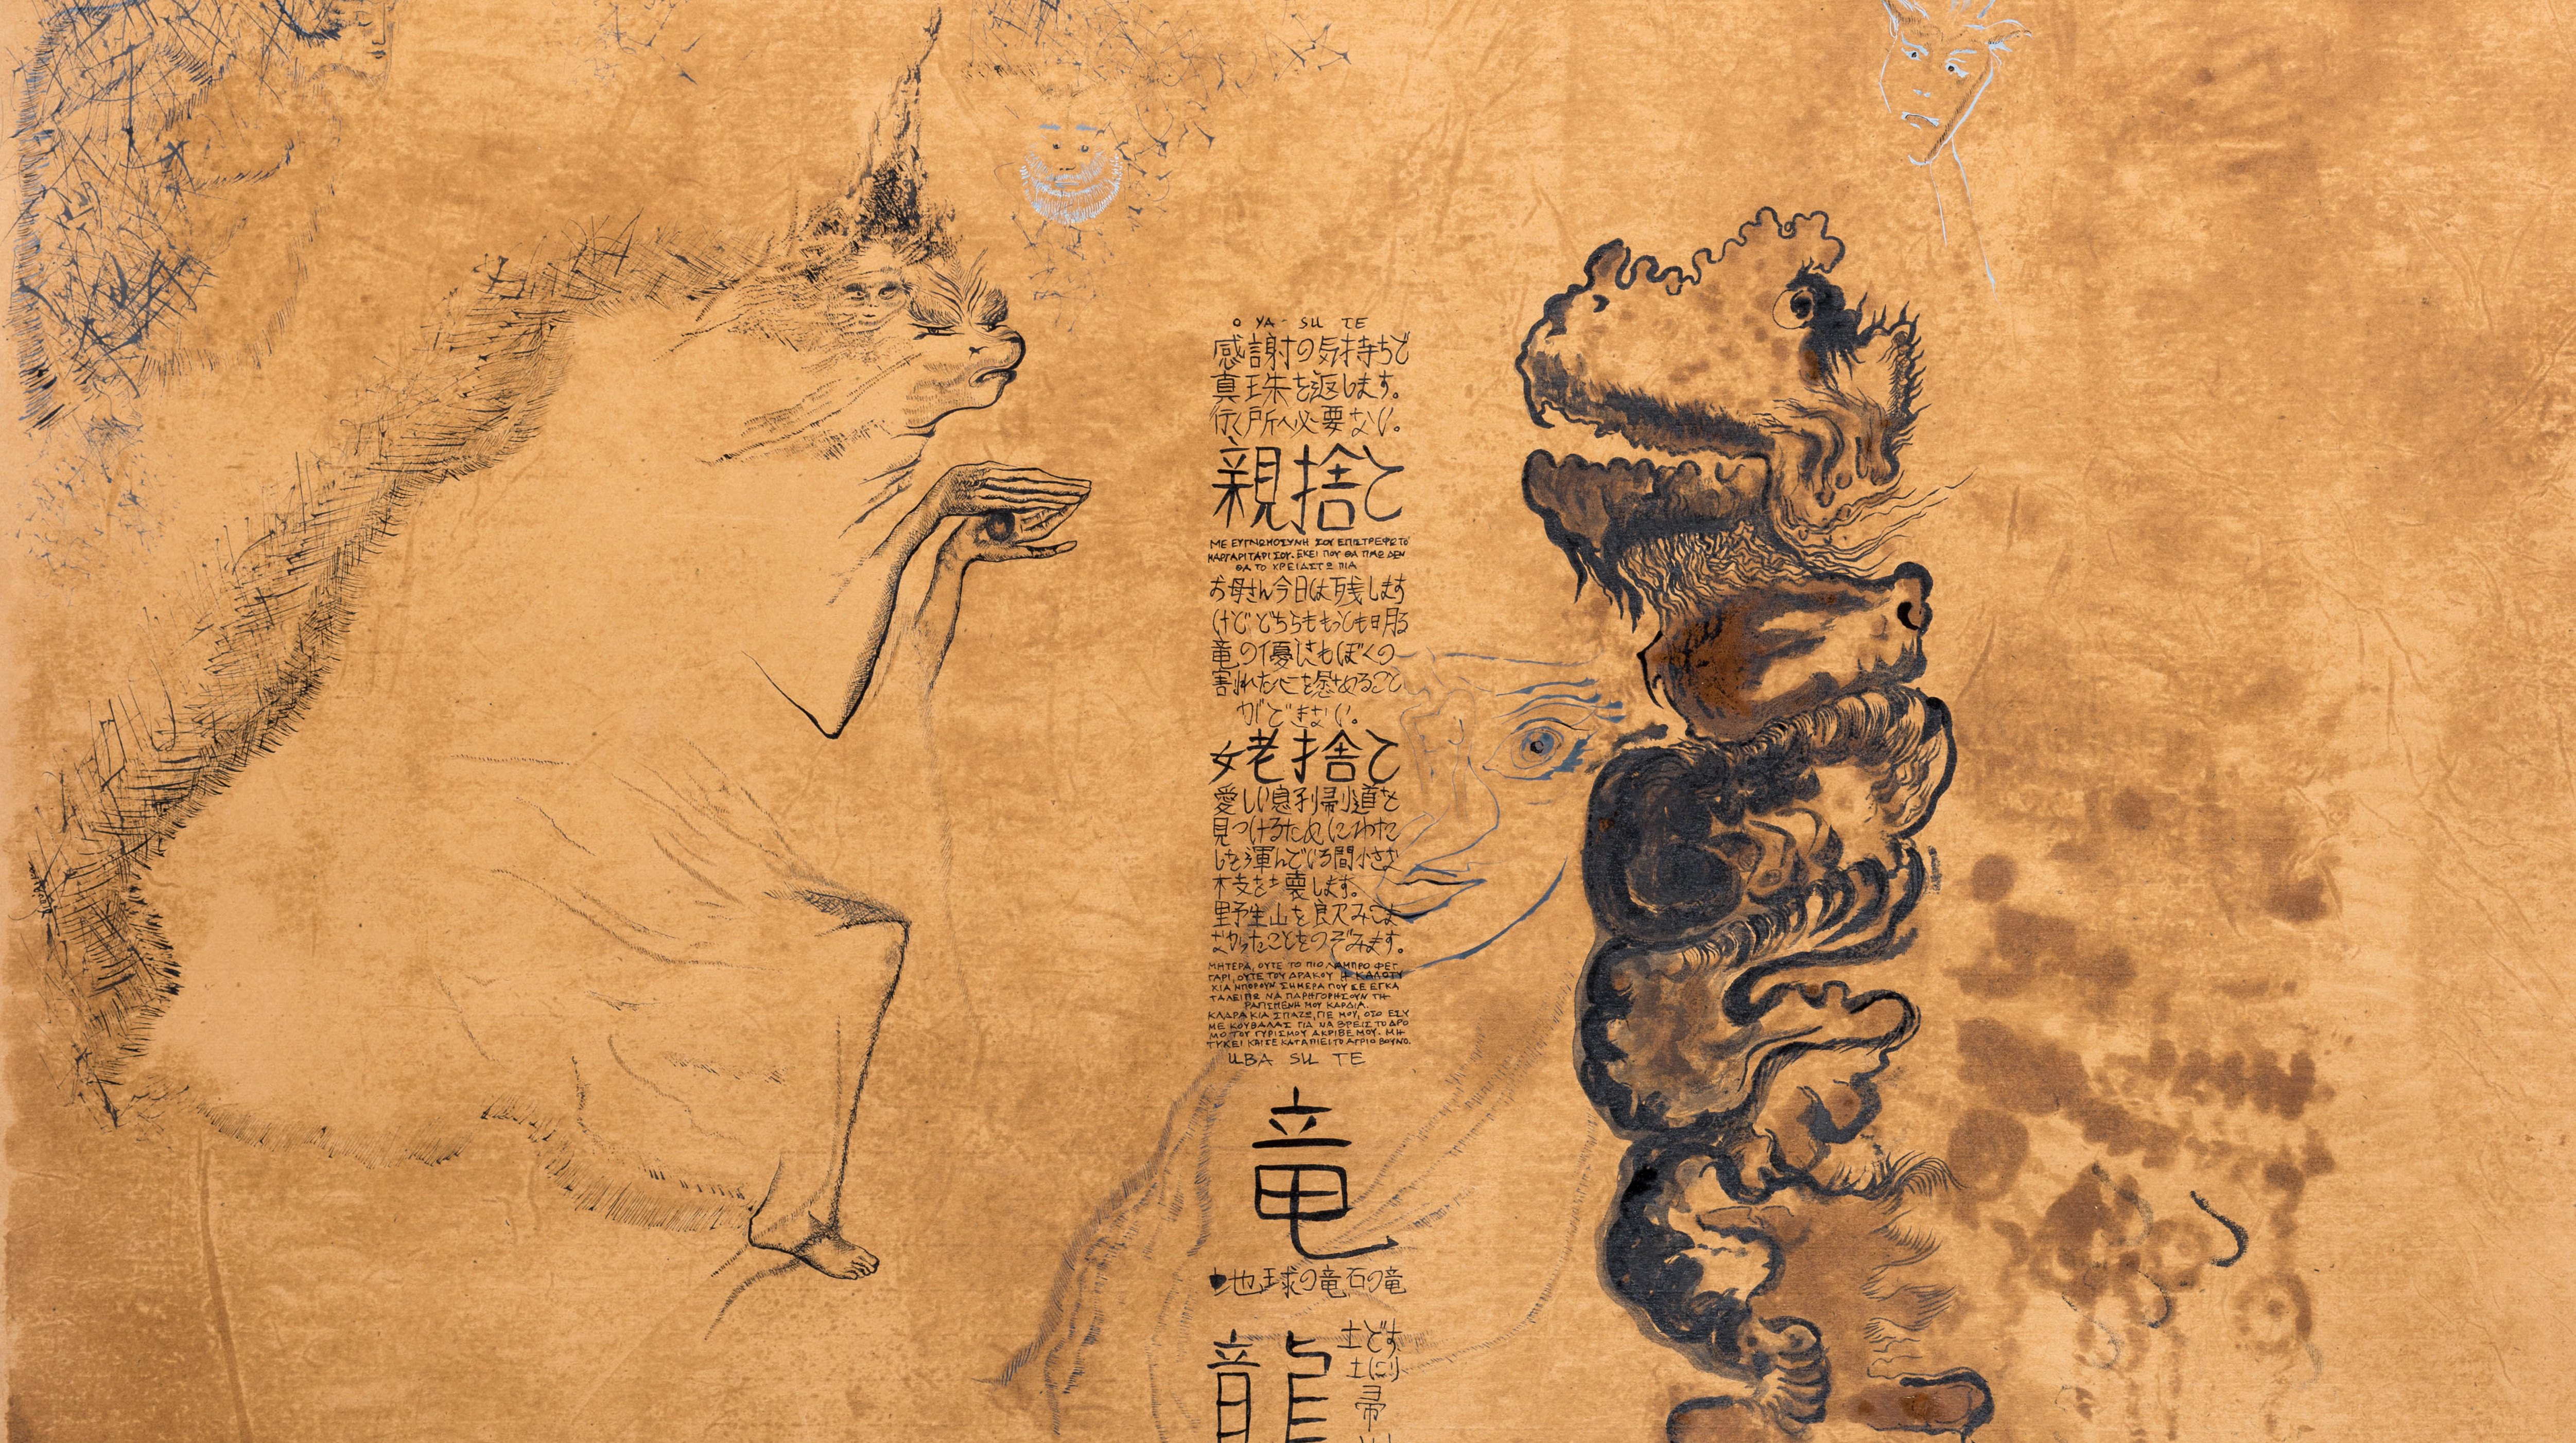 O YA - SU TE
感謝の気持ちで
真珠を返します。
行く所へ必要ない。
親捨て
ΜΕ ΕΥΓΝΩΜΟΣΥΝΗ ΣΟΥ ΕΠΙΣΤΡΕΦΩ ΤΟ
ΜΑΡΓΑΡΙΤΑΡΙ ΣΟΥ. ΕΚΕΙ ΠΟΥ ΘΑ ΠΑΩ ΔΕΝ
ΘΑ ΤΟ ΧΡΕΙΑΣΤΩ ΠΙΑ
お母さん今日は残します
けどどちらももっとも明る
竜の優しさもぼくの
割れた心を慰めること
ができない。
姥捨て
愛しい息子帰り道を
見つけるためにわた
しを運んでいる間小さな
枝を壊します。
野生山を飲みこま
なかったことをのぞみます。
ΜΗΤΕΡΑ, ΟΥΤΕ ΤΟ ΠΙΟ ΛΑΜΠΡΟ ΦΕΓ
ΓΑΡΙ, ΟΥΤΕ ΤΟΥ ΔΡΑΚΟΥ Η ΚΑΛΟΤΥ
ΧΙΑ ΜΠΟΡΟΥΝ ΣΗΜΕΡΑ ΠΟΥ ΣΕ ΕΓΚΑ
ΤΑΛΕΙΠΩ ΝΑ ΠΑΡΗΓΟΡΗΣΟΥΝ ΤΗ
ΡΑΓΙΣΜΕΝΗ ΜΟΥ ΚΑΡΔΙΑ.
ΚΛΑΡΑΚΙΑ ΣΠΑΖΩ, ΓΙΕ ΜΟΥ, ΟΣΟ ΕΣΥ
ΜΕ ΚΟΥΒΑΛΑΣ ΓΙΑ ΝΑ ΒΡΕΙΣ ΤΟ ΔΡΟ
ΜΟ ΤΟΥ ΓΥΡΙΣΜΟΥ ΑΚΡΙΒΕ ΜΟΥ. ΜΗ
ΤΥΧΕΙ ΚΑΙ ΣΕ ΚΑΤΑΠΙΕΙ ΤΟ ΑΓΡΙΟ ΒΟΥΝΟ.
UBA SU TE
竜
地球の竜石の竜
龍
土どす
土に
帰